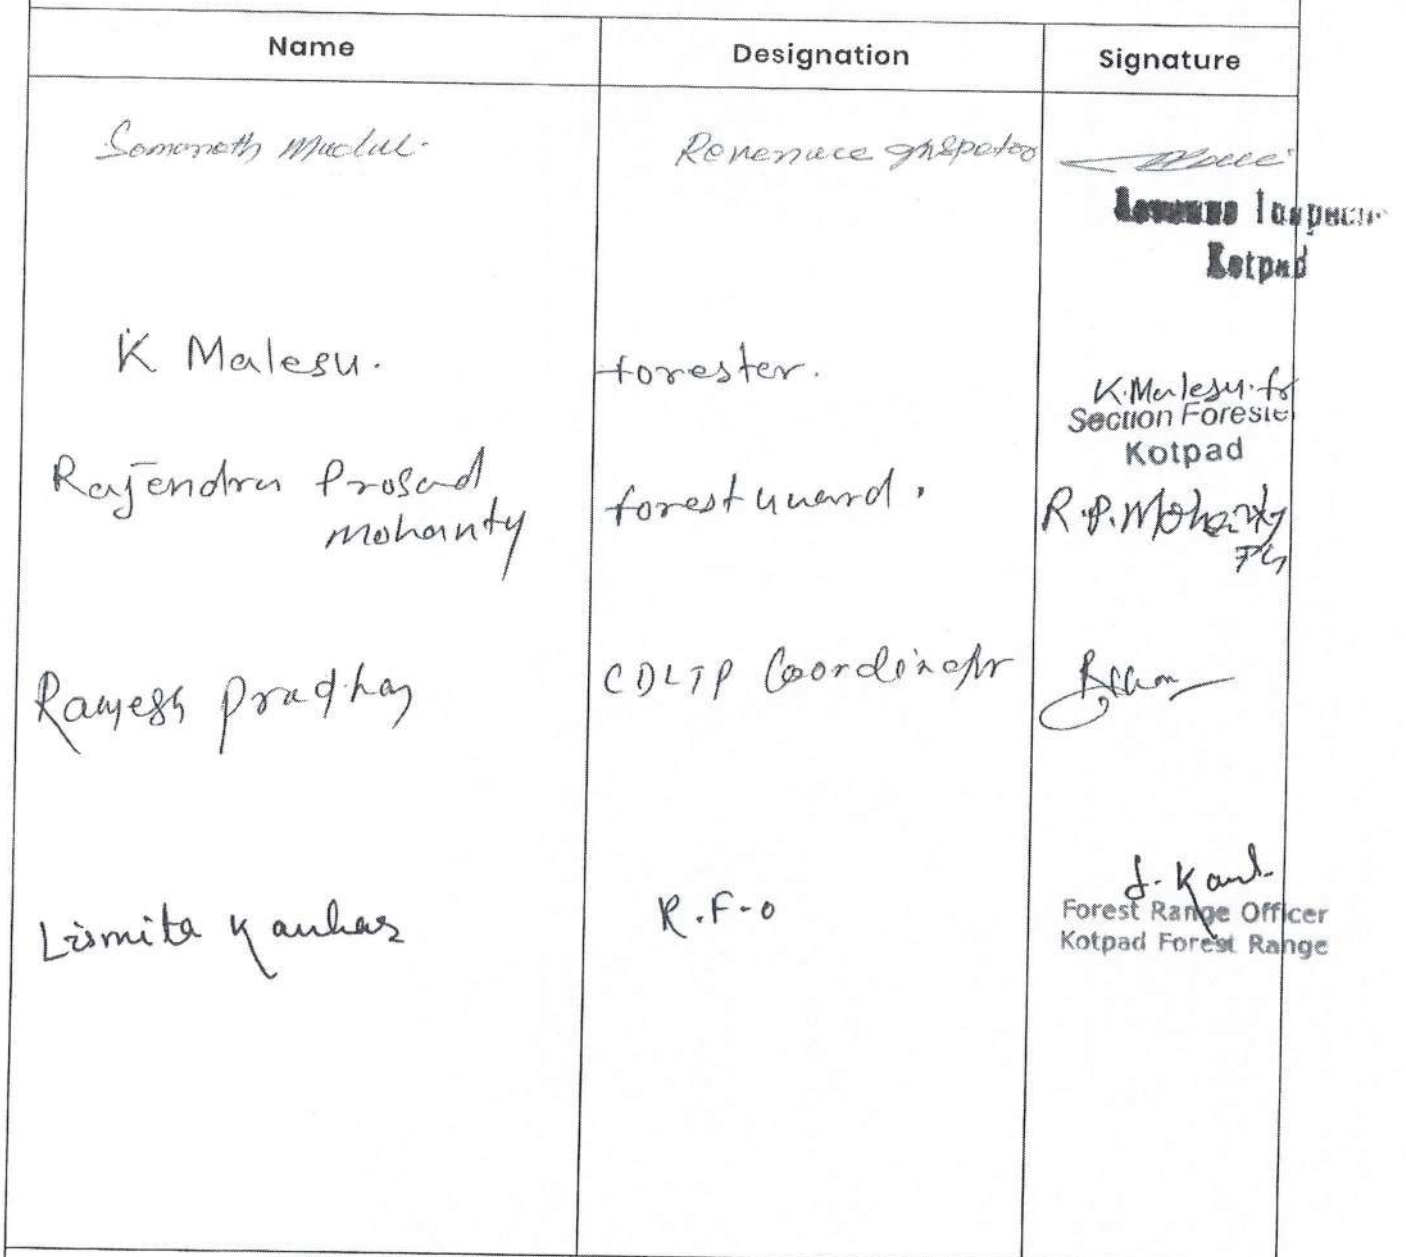 Name Designation Signature
Somanath Mudul. Revenuce Inspator
Revenue Inspec
Kotpad
K Malesu. forester. K.Malesu. fr
Section Foreste
Kotpad
Rajendra Prosad forest guard. R.P.Mohanty
Mohanty FG
Ramesh Pradhan CDLTP Coordinator
Lismita Kanhar R.F-O L. Kanh.
Forest Range Officer
Kotpad Forest Range